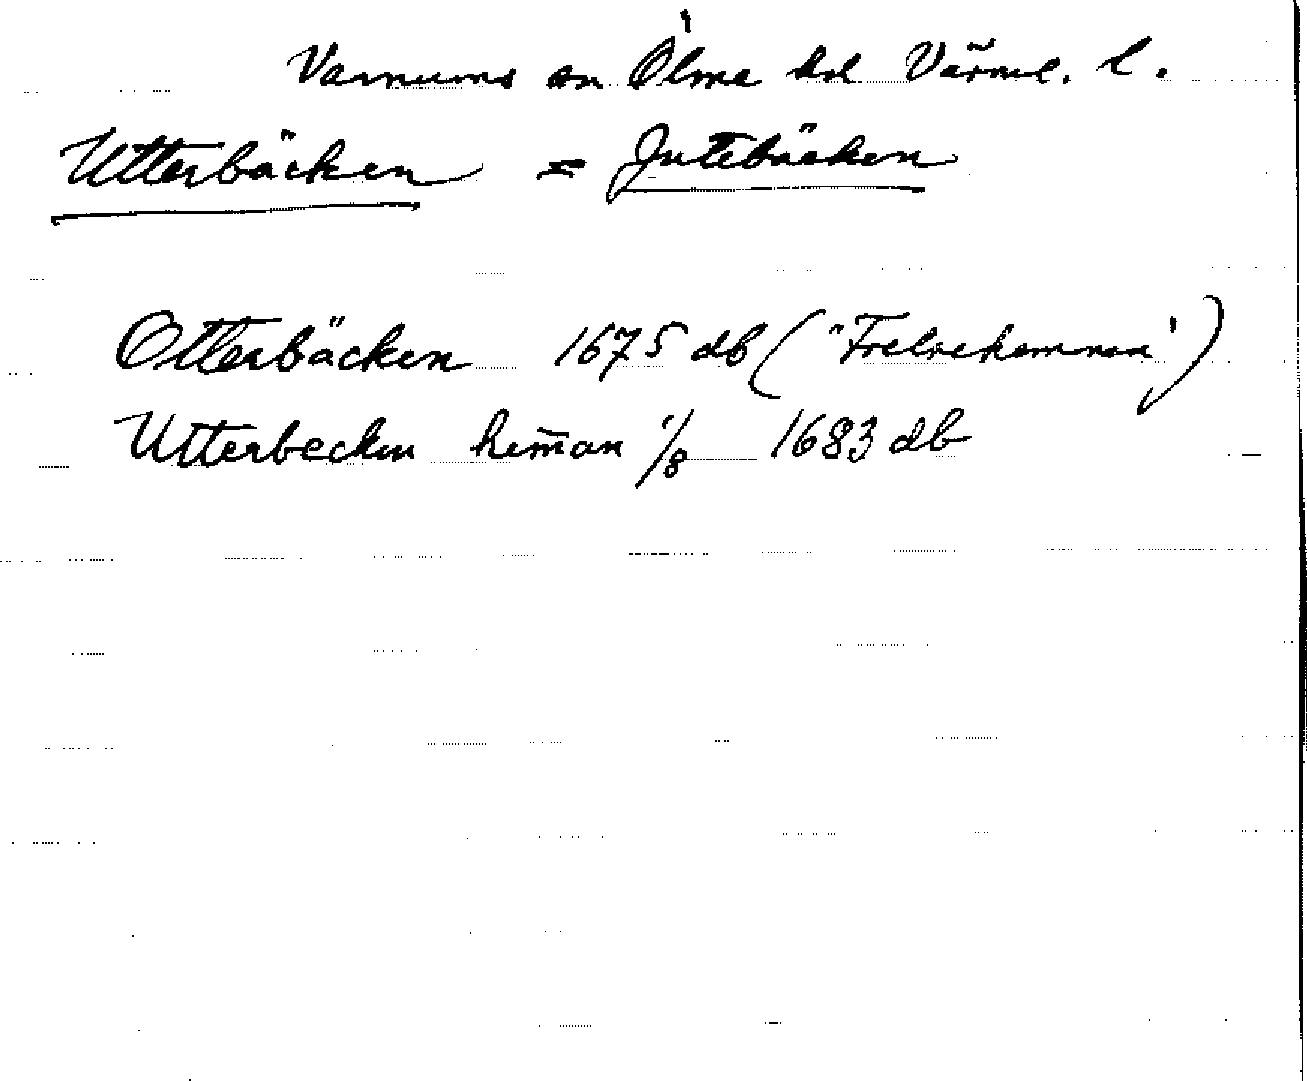 Varnums sn Ölme hd Värml. l.
Utterbäcken = Jutebäcken
Otterbäcken 1675 db ("Frelsehemman")
Utterbecken hem̄an 1/8 1683 db